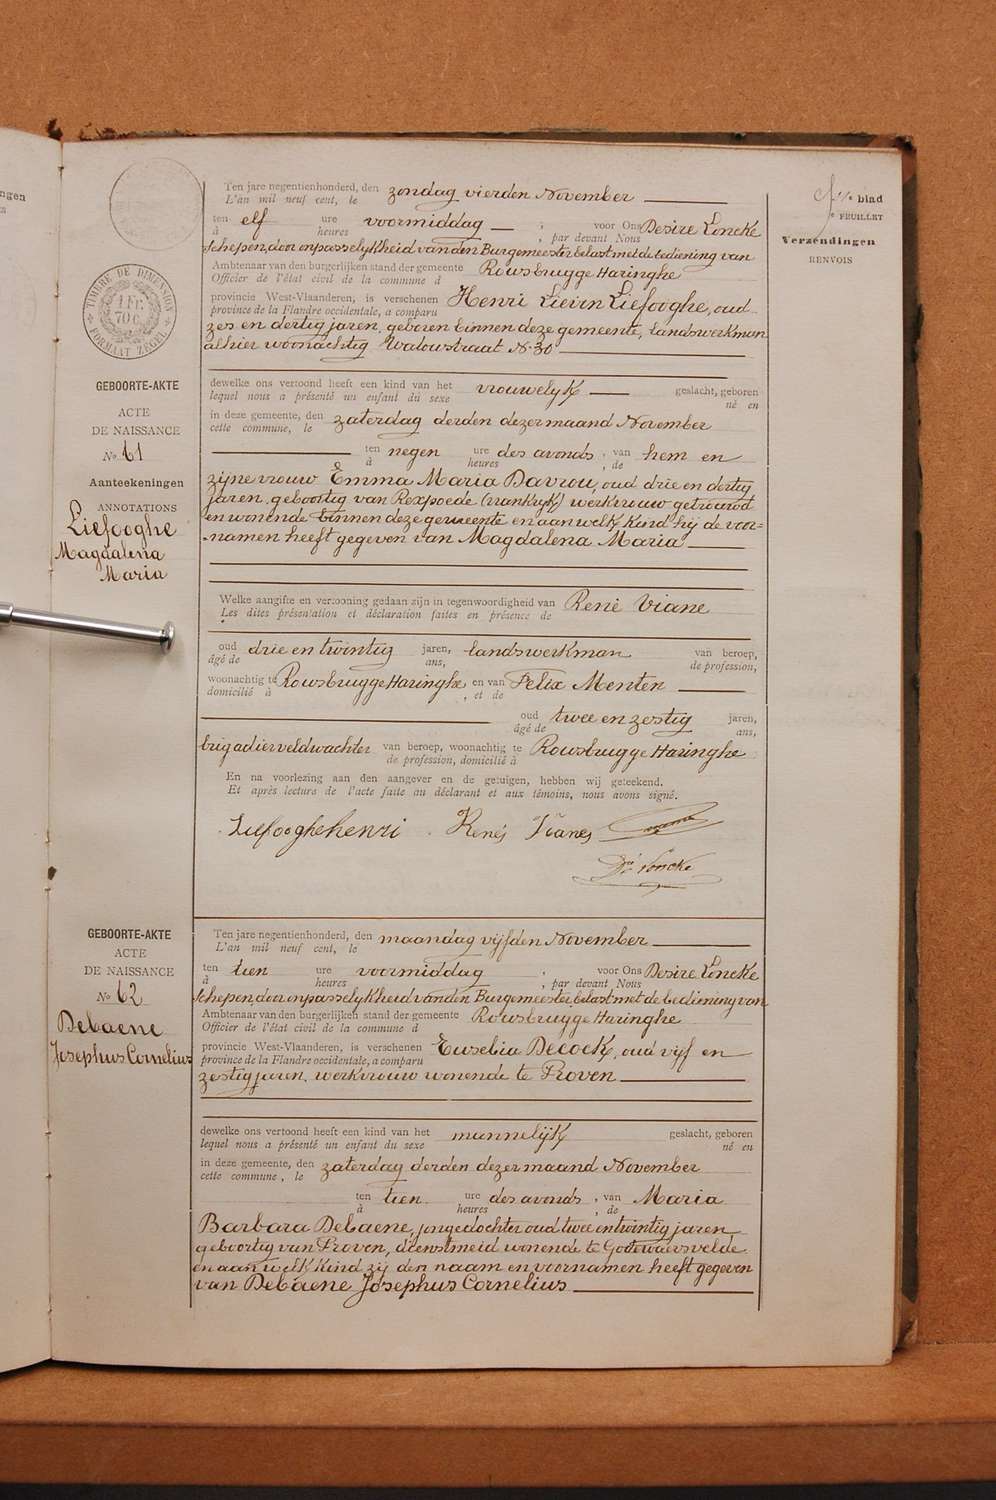 ngen
blad
FEUILLET
Verzendingen
RENVOIS
TIMBRE DE DIMENSION
1 FR. 70 C.
FORMAAT ZEGEL
GEBOORTE-AKTE
ACTE
DE NAISSANCE
No 61
Aanteekeningen
ANNOTATIONS
Liefooghe
Magdalena
Maria
Ten jare negentienhonderd, den zondag vierden November
L'an mil neuf cent, le
ten elf ure voormiddag ; voor Ons Desire Loncke
à heures , par devant Nous
Schepen, door onpasselykheid van den Burgemeester belast met de bediening van
Ambtenaar van den burgerlijken stand der gemeente Rousbrugge Haringhe
Officier de l'état civil de la commune d
provincie West-Vlaanderen, is verschenen Henri Lievin Liefooghe, oud
province de la Flandre occidentale, a comparu
zes en dertig jaren, geboren binnen deze gemeente, landswerkman
alhier woonachtig Walowstraat No 30
dewelke ons vertoond heeft een kind van het vrouwelyk geslacht, geboren
lequel nous a présenté un enfant du sexe né en
in deze gemeente, den zaterdag derden dezer maand November
cette commune, le
ten negen ure des avonds , van hem en
à heures , de
zijne vrouw Emma Maria Davrou, oud drie en dertig
jaren, geboortig van Rexpoede (Frankryk) werkvrouw getrouwd
en wonende binnen deze gemeente en aan welk kind hij de voor-
namen heeft gegeven van Magdalena Maria
Welke aangifte en vertooning gedaan zijn in tegenwoordigheid van René Viane
Les dites présentation et déclaration faites en présence de
oud drie en twintig jaren, landswerkman van beroep,
âgé de ans, de profession,
woonachtig te Rousbrugge Haringhe en van Felix Menten
domicilié à , et de
oud twee en zestig jaren,
âgé de ans,
brigadier veldwachter van beroep, woonachtig te Rousbrugge Haringhe
de profession, domicilié à
En na voorlezing aan den aangever en de getuigen, hebben wij geteekend.
Et après lecture de l'acte faite au déclarant et aux témoins, nous avons signé.
Liefooghe henri René Viane
Dre Loncke
GEBOORTE-AKTE
ACTE
DE NAISSANCE
No 62
Debaene
Josephus Cornelius
Ten jare negentienhonderd, den maandag vijfden November
L'an mil neuf cent, le
ten tien ure voormiddag ; voor Ons Desire Loncke
à heures , par devant Nous
Schepen, door onpasselykheid van den Burgemeester belast met de bediening van
Ambtenaar van den burgerlijken stand der gemeente Rousbrugge Haringhe
Officier de l'état civil de la commune d
provincie West-Vlaanderen, is verschenen Euselia Decock, oud vijf en
province de la Flandre occidentale, a comparu
zestig jaren, werkvrouw wonende te Proven
dewelke ons vertoond heeft een kind van het mannelijk geslacht, geboren
lequel nous a présenté un enfant du sexe né en
in deze gemeente, den zaterdag derden dezer maand November
cette commune, le
ten tien ure des avonds , van Maria
à heures , de
Barbara Debaene, jongedochter oud twee en twintig jaren
geboortig van Proven, dienstmeid wonende te Godewaersvelde
en aan welk kind zij den naam en voornamen heeft gegeven
van Debaene Josephus Cornelius